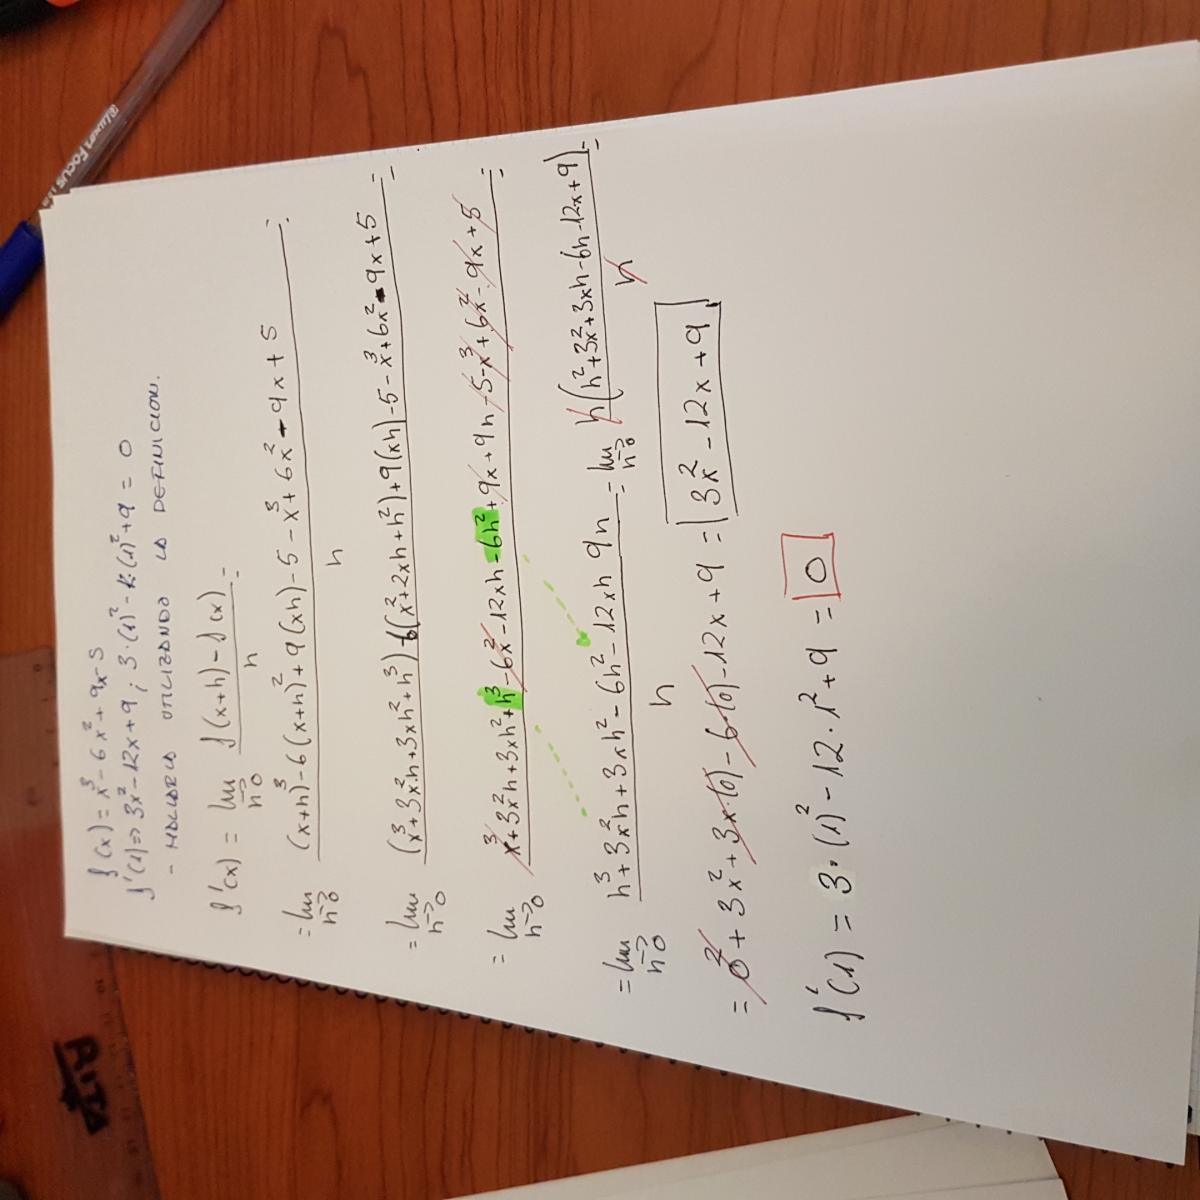 f(x) = x³ - 6x² + 9x - 5
f'(1) => 3x² - 12x + 9 ; 3·(1)² - 12(1)² + 9 = 0
- HALLARLA UTILIZANDO LA DEFINICION.
f'(x) = lim h→0 f(x+h) - f(x) / h =
= lim h→0 (x+h)³ - 6(x+h)² + 9(xh) - 5 - x³ + 6x² - 9x + 5 / h =
= lim h→0 (x³ + 3x²·h + 3xh² + h³) - 6(x² + 2xh + h²) + 9(xh) - 5 - x³ + 6x² - 9x + 5 =
= lim h→0 x³ + 3x²h + 3xh² + h³ - 6x² - 12xh - 6h² + 9x + 9h - 5 - x³ + 6x² - 9x + 5 =
= lim h→0 h³ + 3x²h + 3xh² - 6h² - 12xh 9h / h = lim h→0 h(h² + 3x² + 3xh - 6h - 12x + 9) / h =
= 0² + 3x² + 3x·(0) - 6·(0) - 12x + 9 = 3x² - 12x + 9
f'(1) = 3·(1)² - 12·1² + 9 = 0
Luxen Focus
RITA